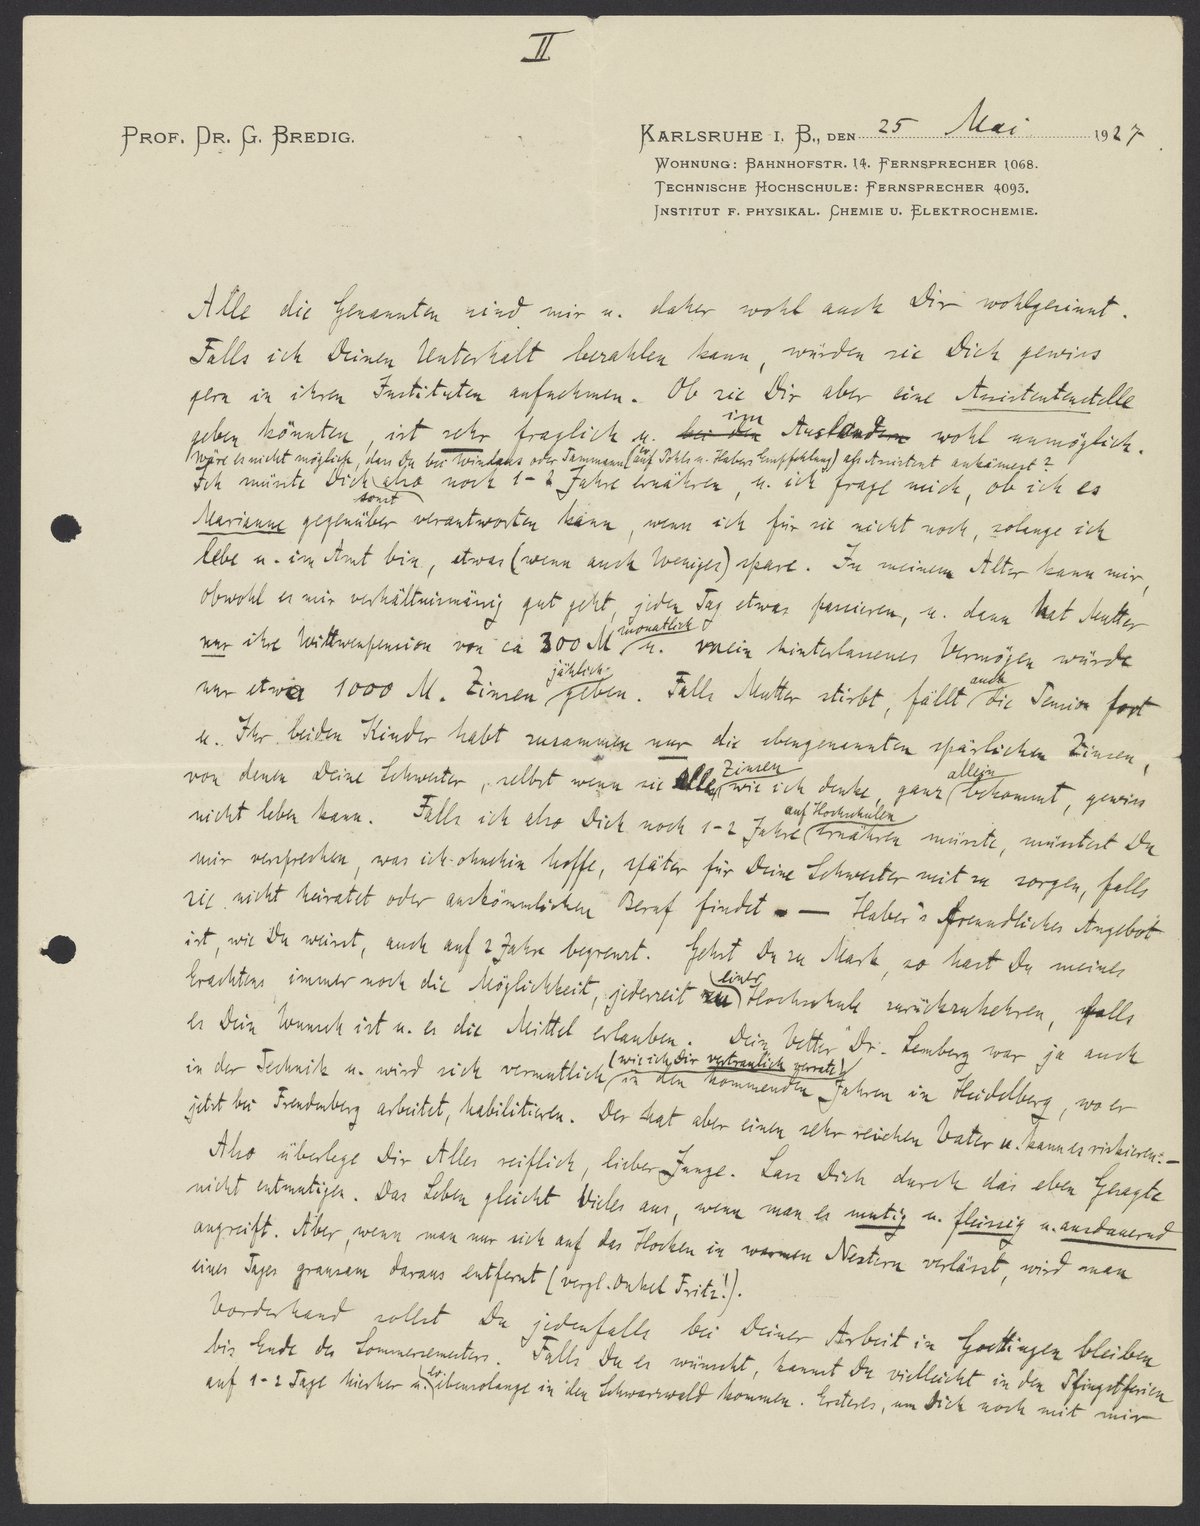 II
PROF. DR. G. BREDIG.
KARLSRUHE I. B., DEN 25 Mai 1927
WOHNUNG: BAHNHOFSTR. 14. FERNSPRECHER 1068.
TECHNISCHE HOCHSCHULE: FERNSPRECHER 4093.
INSTITUT F. PHYSIKAL. CHEMIE U. ELEKTROCHEMIE.
Alle die Genannten sind mir u. daher wohl auch Dir wohlgesinnt.
Falls ich Deinen Unterhalt bezahlen kann, würden sie Dich gewiss
gern in ihren Instituten aufnehmen. Ob sie Dir aber eine Assistentenstelle
geben könnten, ist sehr fraglich u. bei den im Ausländern wohl unmöglich.
Wäre es nicht möglich, dass Du bei Windaus oder Tammann (auf Pohls u. Habers Empfehlung) als Assistent ankämest?
Ich müsste Dich also sonst noch 1-2 Jahre ernähren, u. ich frage mich, ob ich es
Marianne gegenüber verantworten kann, wenn ich für sie nicht noch, solange ich
lebe u. im Amt bin, etwas (wenn auch Weniges) spare. In meinem Alter kann mir,
obwohl es mir verhältnismässig gut geht, jeden Tag etwas passieren, u. dann hat Mutter
nur ihre Wittwenpension von ca 300 M monatlich u. mein hinterlassenes Vermögen würde
nur etwa 1000 M. Zinsen jährlich geben. Falls Mutter stirbt, fällt auch die Pension fort
u. Ihr beiden Kinder habt zusammen nur die ebengenannten spärlichen Zinsen,
von denen Deine Schwester, selbst wenn sie alle Zinsen, wie ich denke, ganz allein bekommt, gewiss
nicht leben kann. Falls ich also Dich noch 1-2 Jahre auf Hochschulen ernähren müsste, müsstest Du
mir versprechen, was ich ohnehin hoffe, später für Deine Schwester mit zu sorgen, falls
sie nicht heiratet oder auskömmlichen Beruf findet. — Haber's freundliches Angebot
ist, wie Du weisst, auch auf 2 Jahre begrenzt. Gehst Du zu Mark, so hast Du meines
Erachtens immer noch die Möglichkeit, jederzeit zu einer Hochschule zurückzukehren, falls
es Dein Wunsch ist u. es die Mittel erlauben. Dein Vetter Dr. Lemberg war ja auch
in der Technik u. wird sich vermutlich (wie ich Dir vertraulich verrate) in den kommenden Jahren in Heidelberg, wo er
jetzt bei Freudenberg arbeitet, habilitieren. Der hat aber einen sehr reichen Vater u. kann es riskieren. —
Also überlege Dir Alles reiflich, lieber Junge. Lass Dich durch das eben Gesagte
nicht entmutigen. Das Leben gleicht Vieles aus, wenn man es mutig u. fleissig u. ausdauernd
angreift. Aber, wenn man nur sich auf das Hocken in warmen Nestern verlässt, wird man
eines Tages grausam daraus entfernt (vergl. Onkel Fritz!).
Vorderhand sollst Du jedenfalls bei Deiner Arbeit in Goettingen bleiben
bis Ende des Sommersemesters. Falls Du es wünscht, kannst Du vielleicht in den Pfingstferien
auf 1-2 Tage hierher u. ebensolange in den Schwarzwald kommen. Ersteres, um Dich noch mit mir